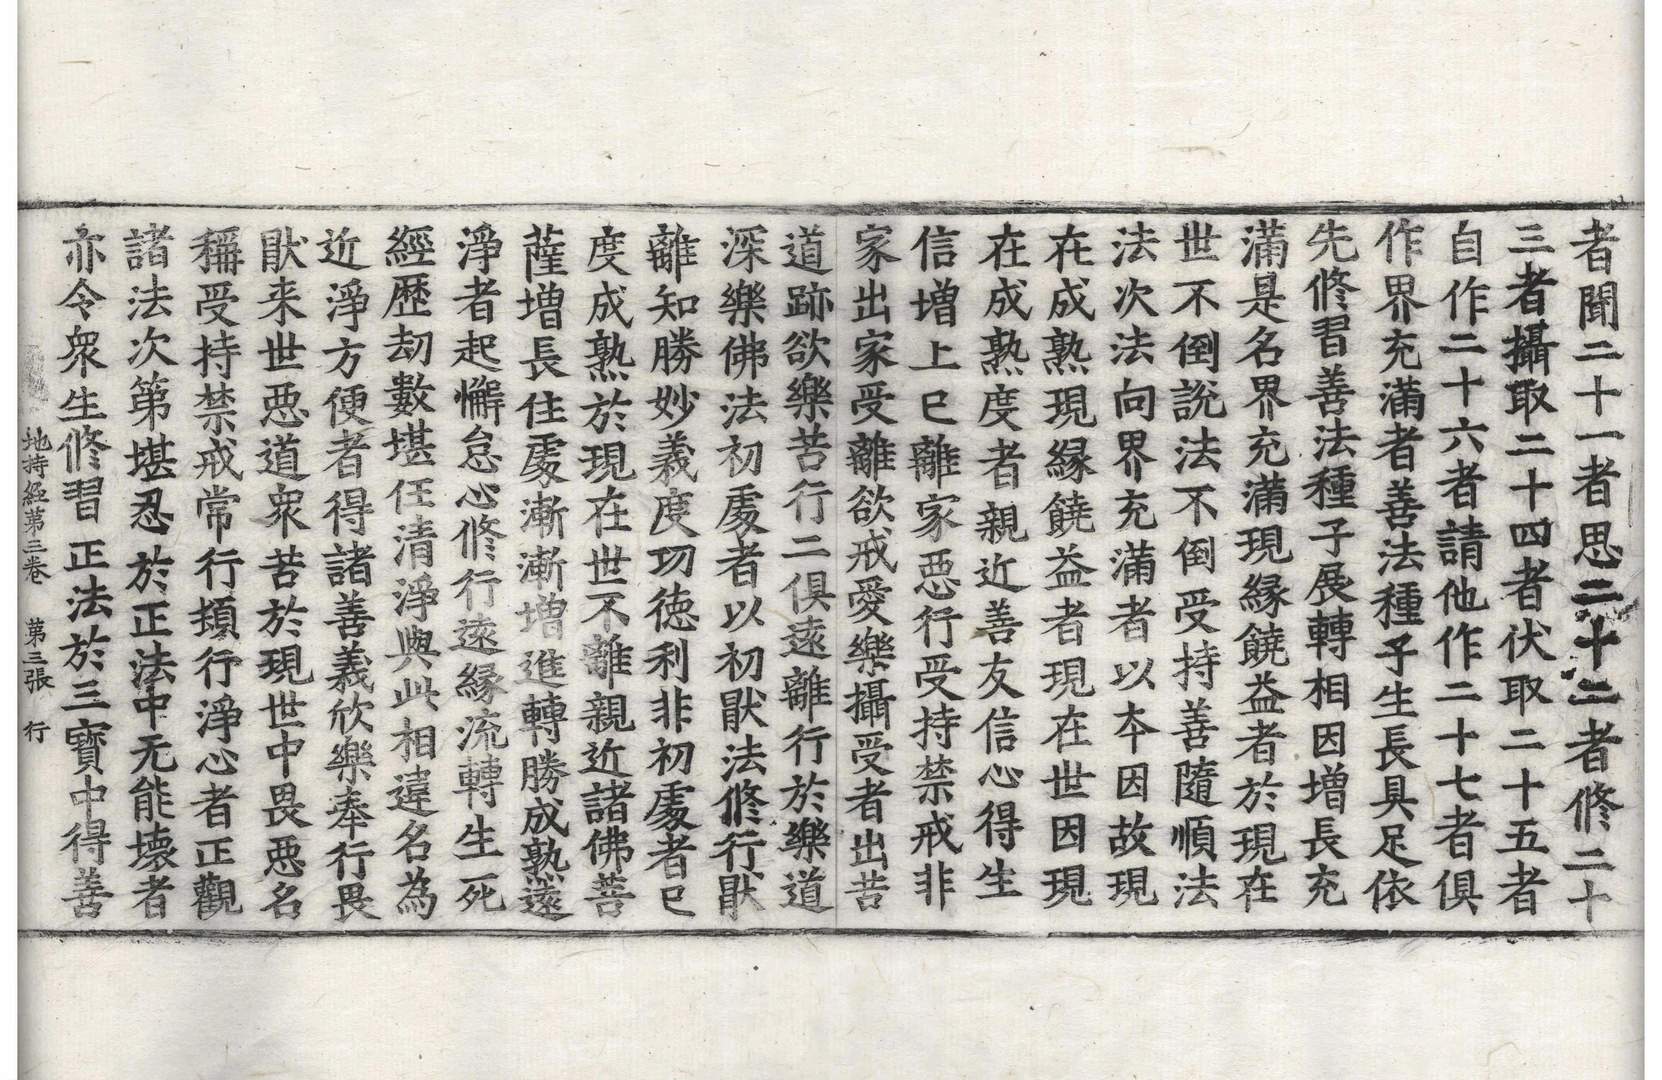 者聞二十一者思二十二者修二十
三者攝取二十四者伏取二十五者
自作二十六者請他作二十七者俱
作界充滿者善法種子生長具足依
先修習善法種子展轉相因增長充
滿是名界充滿現緣饒益者於現在
世不倒說法不倒受持善隨順法
法次法向界充滿者以本因故現
在成熟現緣饒益者現在世因現
在成熟度者親近善友信心得生
信增上已離家惡行受持禁戒非
家出家受離欲戒愛樂攝受者出苦
道跡欲樂苦行二俱遠離行於樂道
深樂佛法初處者以初猒法修行猒
離知勝妙義度功德利非初處者已
度成熟於現在世不離親近諸佛菩
薩增長住處漸漸增進轉勝成熟遠
淨者起懈怠心修行遠緣流轉生死
經歷劫數堪任清淨與此相違名為
近淨方便者得諸善義欣樂奉行畏
猒来世惡道衆苦於現世中畏惡名
稱受持禁戒常行類行淨心者正觀
諸法次第堪忍於正法中无能壞者
亦令衆生修習正法於三寶中得善
地持經第三卷　第三張　行